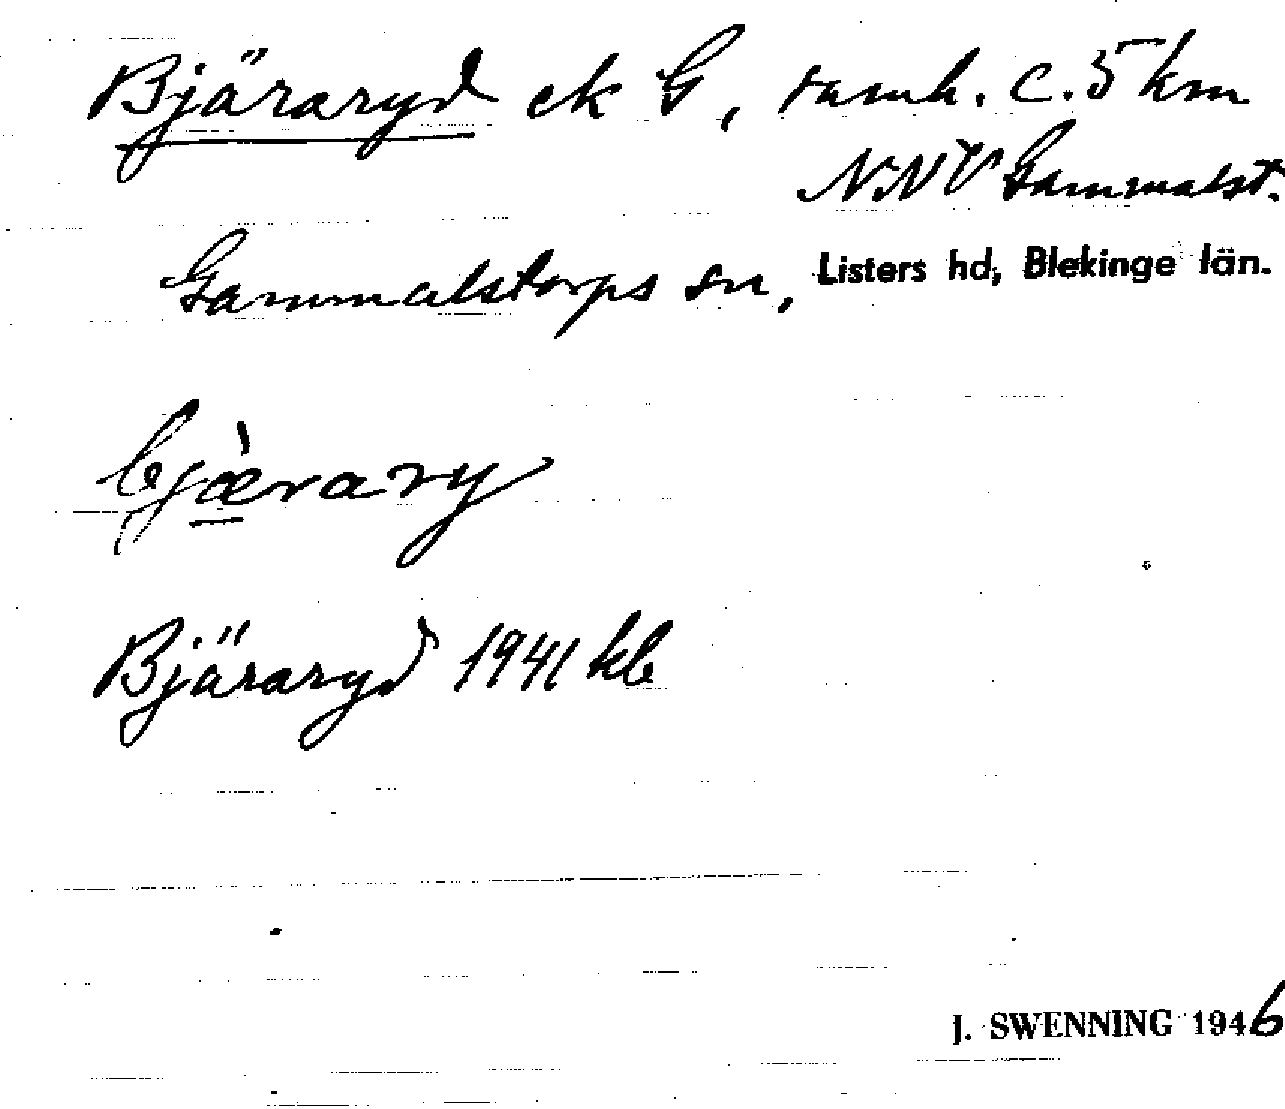 Bjäraryd ek G, samh. c. 5 km
NNV Gammalst.
Gammalstorps sn, Listers hd, Blekinge län.
bjæ̀rary
Bjäraryd 1941 kb
J. SWENNING 1946